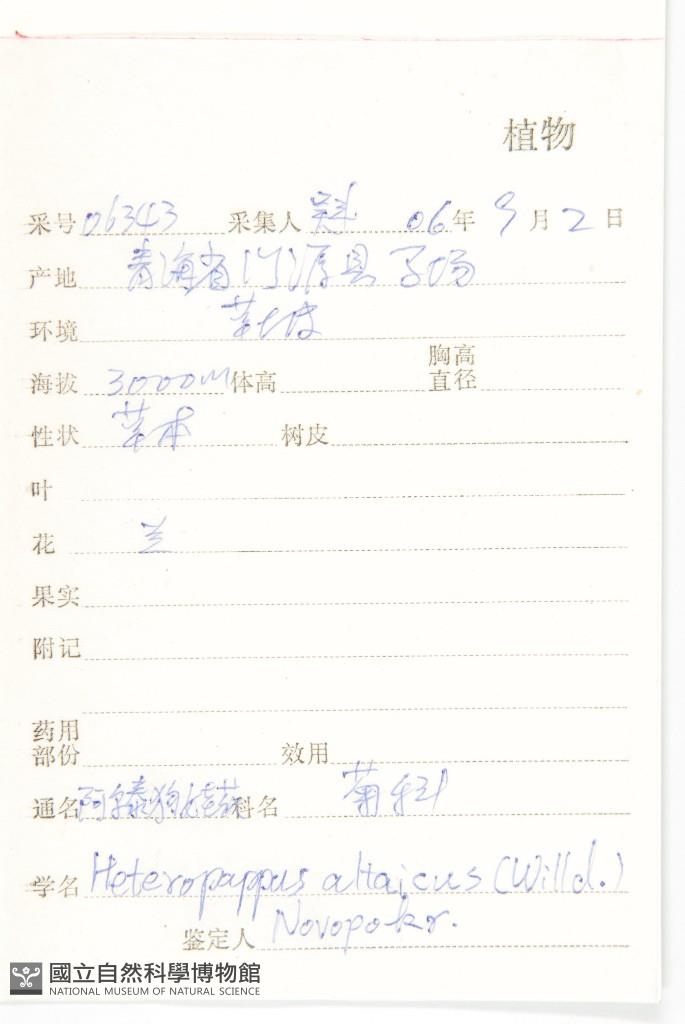 植物
采号 06343 采集人 06年 9月 2日
产地 青海省门源县
环境 草坡
海拔 3000m 体高 胸高直径
性状 草本 树皮
叶
花 兰
果实
附记
药用部份 效用
通名 阿尔泰狗娃花 科名 菊科
学名 Heteropappus altaicus (Willd.)
Novopokr.
鉴定人
國立自然科學博物館
NATIONAL MUSEUM OF NATURAL SCIENCE